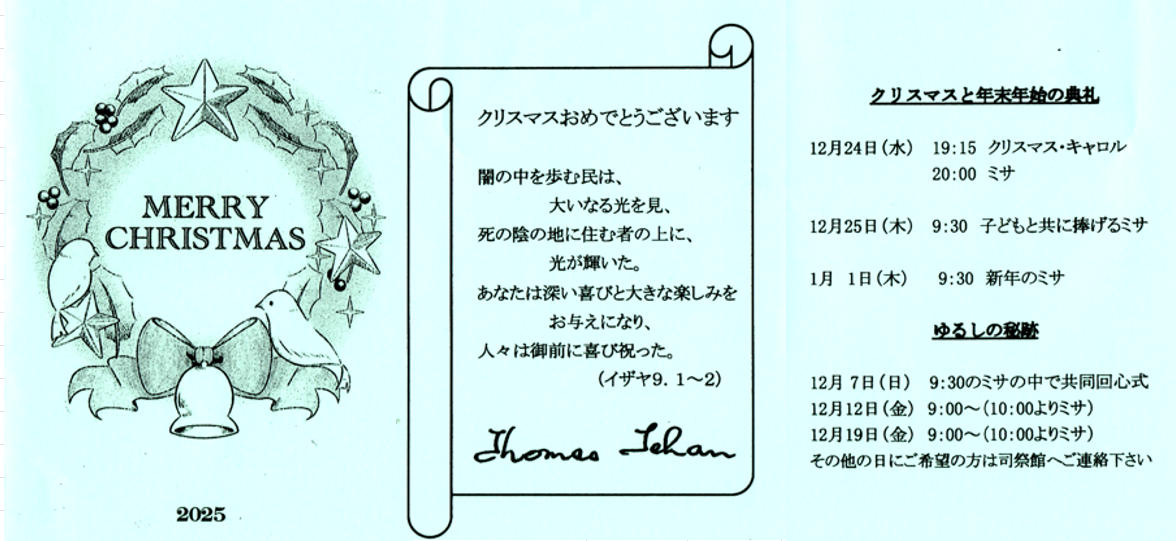 MERRY
CHRISTMAS
2025
クリスマスおめでとうございます
闇の中を歩む民は、
大いなる光を見、
死の陰の地に住む者の上に、
光が輝いた。
あなたは深い喜びと大きな楽しみを
お与えになり、
人々は御前に喜び祝った。
(イザヤ9. 1～2)
Thomas Tehan
クリスマスと年末年始の典礼
12月24日(水) 19:15 クリスマス・キャロル
20:00 ミサ
12月25日(木) 9:30 子どもと共に捧げるミサ
1月 1日(木) 9:30 新年のミサ
ゆるしの秘跡
12月 7日(日) 9:30のミサの中で共同回心式
12月12日(金) 9:00～(10:00よりミサ)
12月19日(金) 9:00～(10:00よりミサ)
その他の日にご希望の方は司祭館へご連絡下さい